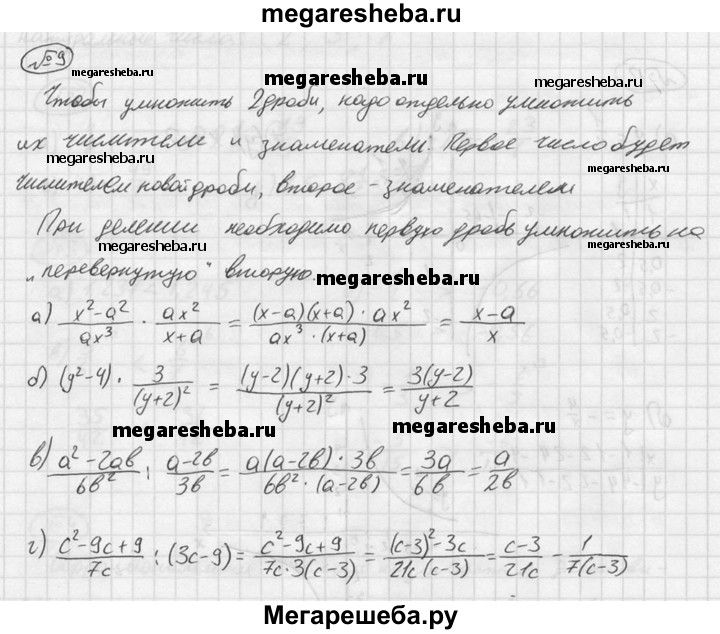 megaresheba.ru
№9
megaresheba.ru megaresheba.ru megaresheba.ru
Чтобы умножить 2 дроби, надо отдельно умножить
их числители и знаменатели. Первое число будет
megaresheba.ru megaresheba.ru
числителем новой дроби, второе - знаменателем
При делении необходимо первую дробь умножить на
megaresheba.ru megaresheba.ru
„перевернутую“ вторую.
megaresheba.ru
а) (x²-a²)/(ax³) · (ax²)/(x+a) = ((x-a)(x+a)·ax²)/(ax³·(x+a)) = (x-a)/x
б) (y²-4) · 3/(y+2)² = ((y-2)(y+2)·3)/(y+2)² = (3(y-2))/(y+2)
megaresheba.ru megaresheba.ru
в) (a²-2ab)/(6b²) : (a-2b)/(3b) = (a(a-2b)·3b)/(6b²·(a-2b)) = (3a)/(6b) = a/(2b)
г) (c²-9c+9)/(7c) : (3c-9) = (c²-9c+9)/(7c·3(c-3)) = ((c-3)²-3c)/(21c(c-3)) = (c-3)/(21c) - 1/(7(c-3))
Мегарешеба.ру